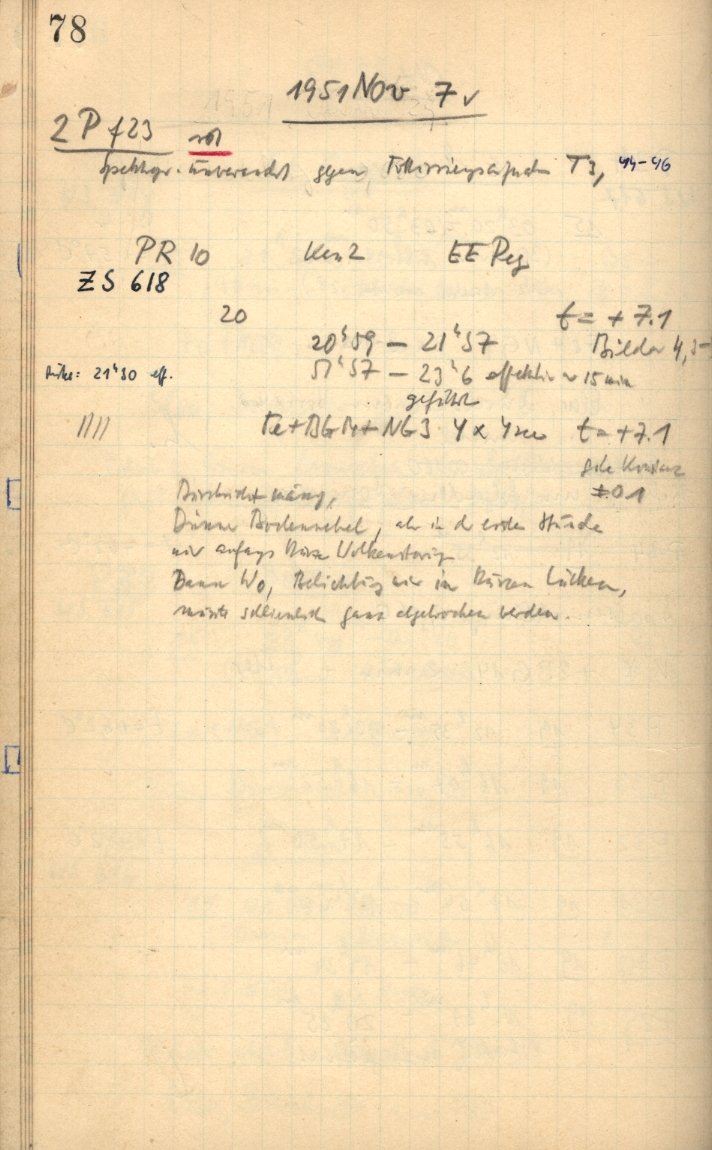 78
1951 Nov 7
2 P f23 rot
Spektrgr. unverändert gegen T3, 44-46
PR 10 Ken2 EE Peg
ZS 618
20 t = + 7.1
20ʰ59 — 21ʰ57 Bilder 4,5
Mitte: 21ʰ30 eff. 21ʰ57 — 23ʰ6 effektiv 15 min
geführt
//// Fe+BG14+NG3 4 x 4 sec t = +7.1
gute Konstanz
±0.1
Durchsicht mässig,
Dünner Bodennebel, aber in der ersten Stunde
nur anfangs kurze Wolkenstörung
Dann Wo, Belichtung nur in kurzen Lücken,
musste schliesslich ganz abgebrochen werden.